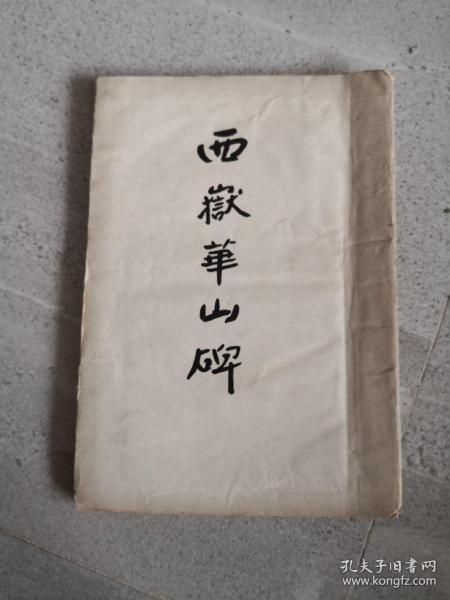 西嶽華山碑
孔夫子旧书网
www.kongfz.com